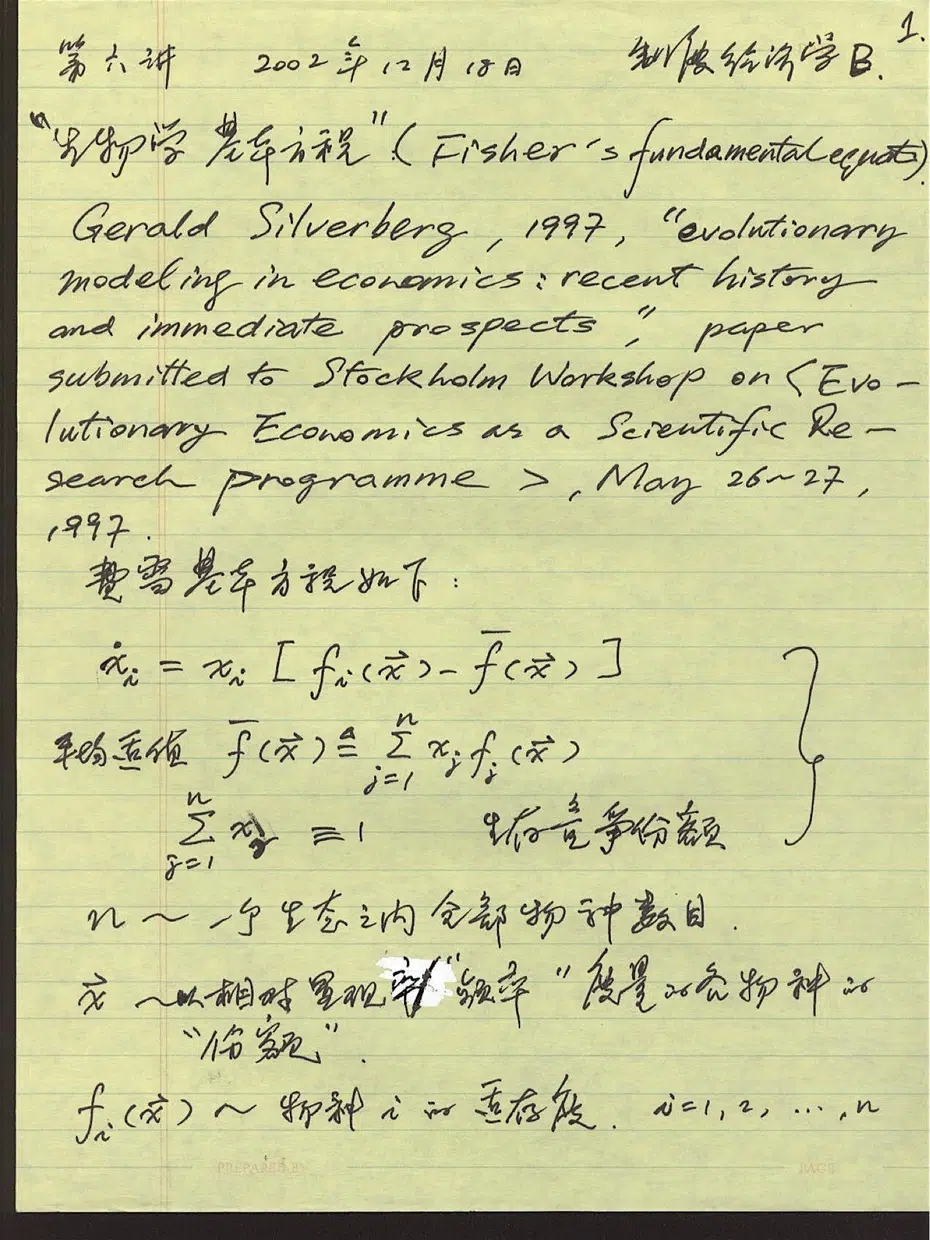 1.
第六讲 2002年12月18日 制度经济学B.
"生物学基本方程" (Fisher's fundamental equati)
Gerald Silverberg, 1997, "evolutionary
modeling in economics: recent history
and immediate prospects", paper
submitted to Stockholm Workshop on <Evo-
lutionary Economics as a Scientific Re-
search programme>, May 26~27,
1997.
费雪基本方程如下:
ẋᵢ = xᵢ [fᵢ(x⃗) - f̄(x⃗)]
平均适值 f̄(x⃗) ≜ Σⁿⱼ₌₁ xⱼ fⱼ(x⃗)
Σⁿⱼ₌₁ xⱼ ≡ 1 生存竞争份额
n ~ 一个生态之内全部物种数目.
x⃗ ~ 以相对出现 "频率" 度量的各物种的
"份额".
fᵢ(x⃗) ~ 物种 i 的适存度. i=1, 2, ..., n
PREPARED BY PAGE